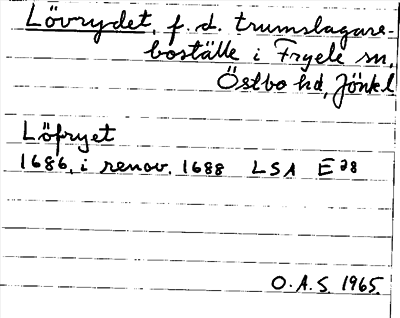 Lövrydet, f. d. trumslagare-
boställe i Fryele sn,
Östbo hd, Jönkl
Löfryet
1686, i renov. 1688 LSA E28
O.A.S. 1965.